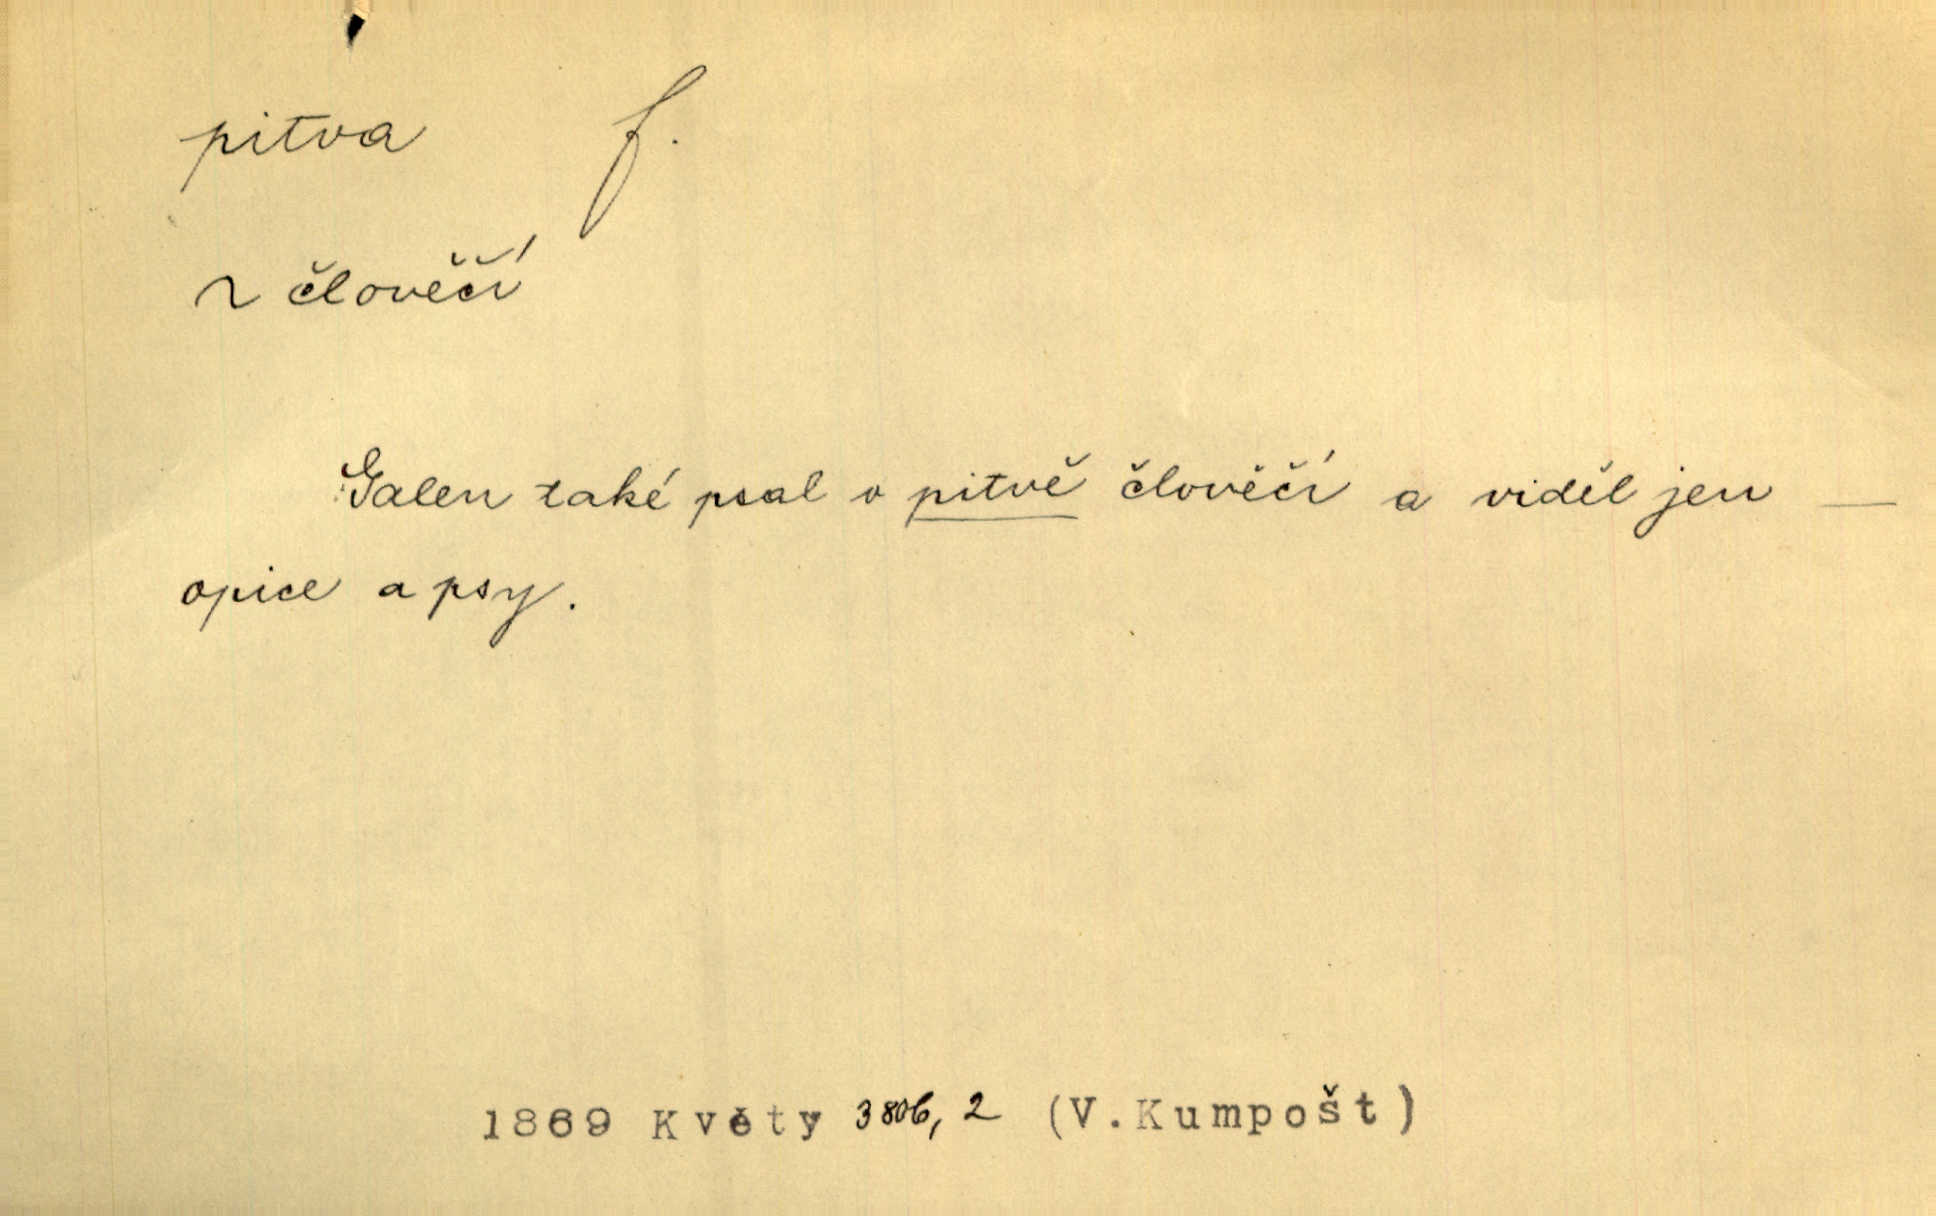 pitva f.
~ člověčí
Galen také psal o pitvě člověčí a viděl jen —
opice a psy.
1869 Květy 380b, 2 (V.Kumpošt)